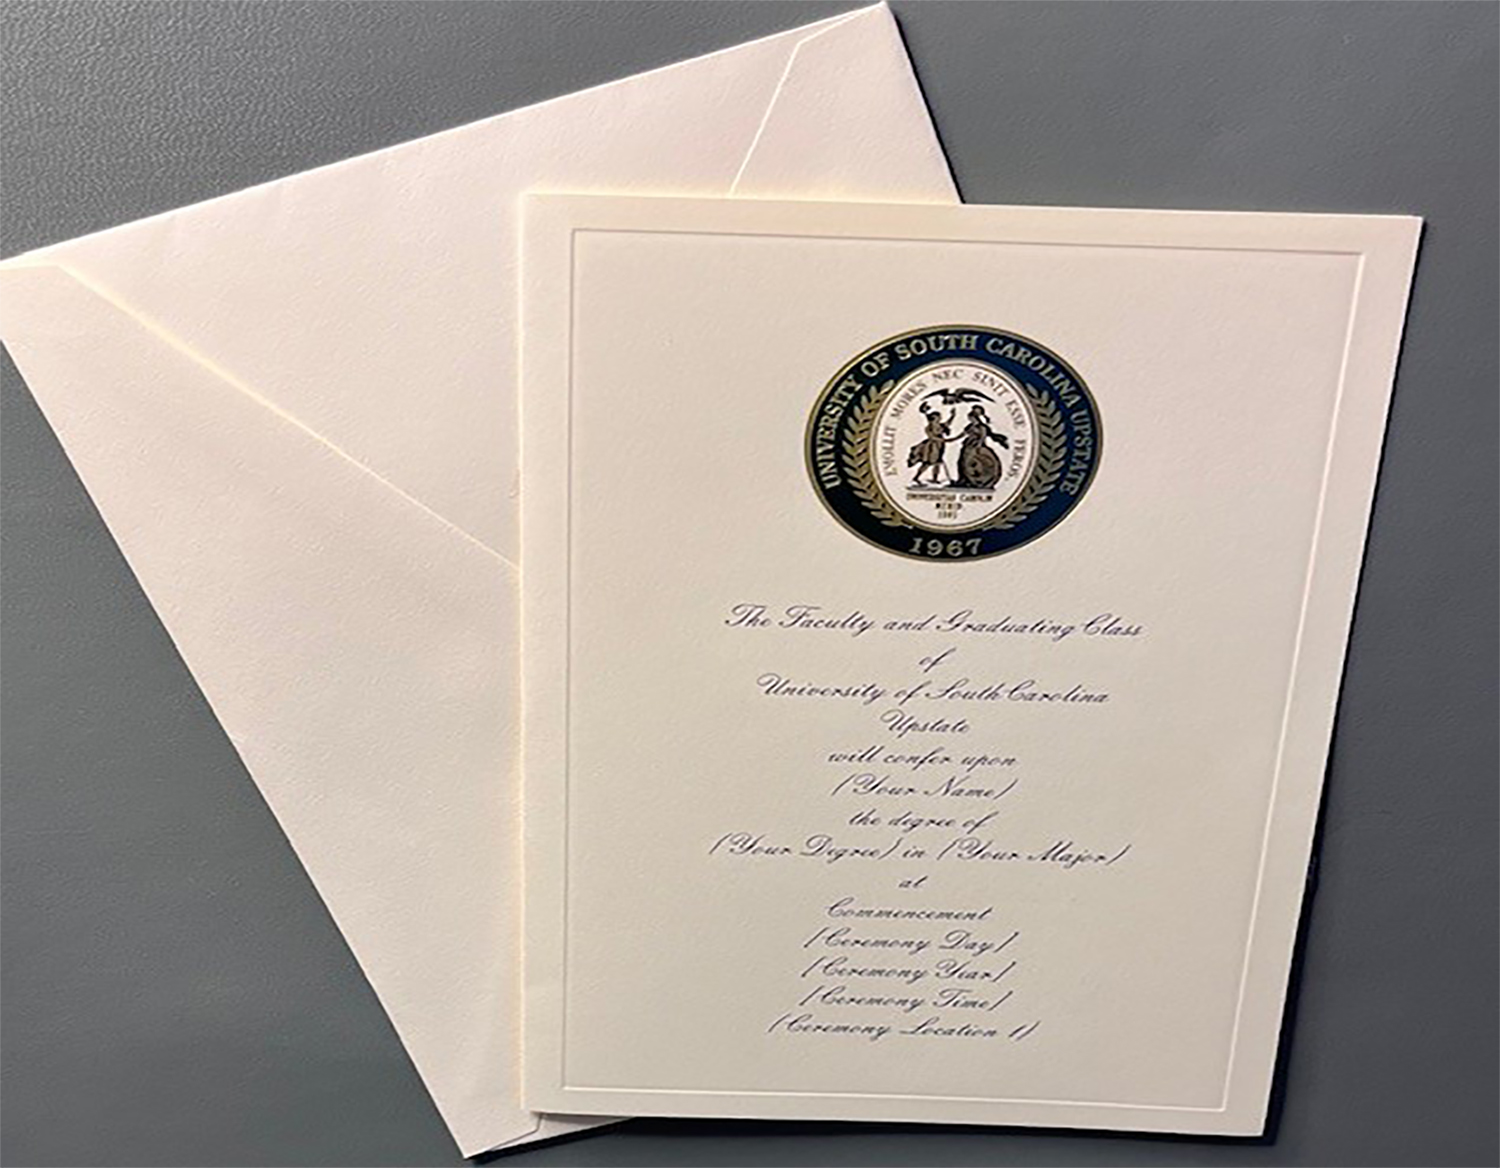 UNIVERSITY OF SOUTH CAROLINA UPSTATE
EMOLLIT MORES NEC SINIT ESSE FEROS.
1967
The Faculty and Graduating Class
of
University of South Carolina
Upstate
will confer upon
(Your Name)
the degree of
(Your Degree) in (Your Major)
at
Commencement
[Ceremony Day]
[Ceremony Year]
[Ceremony Time]
(Ceremony Location 1)